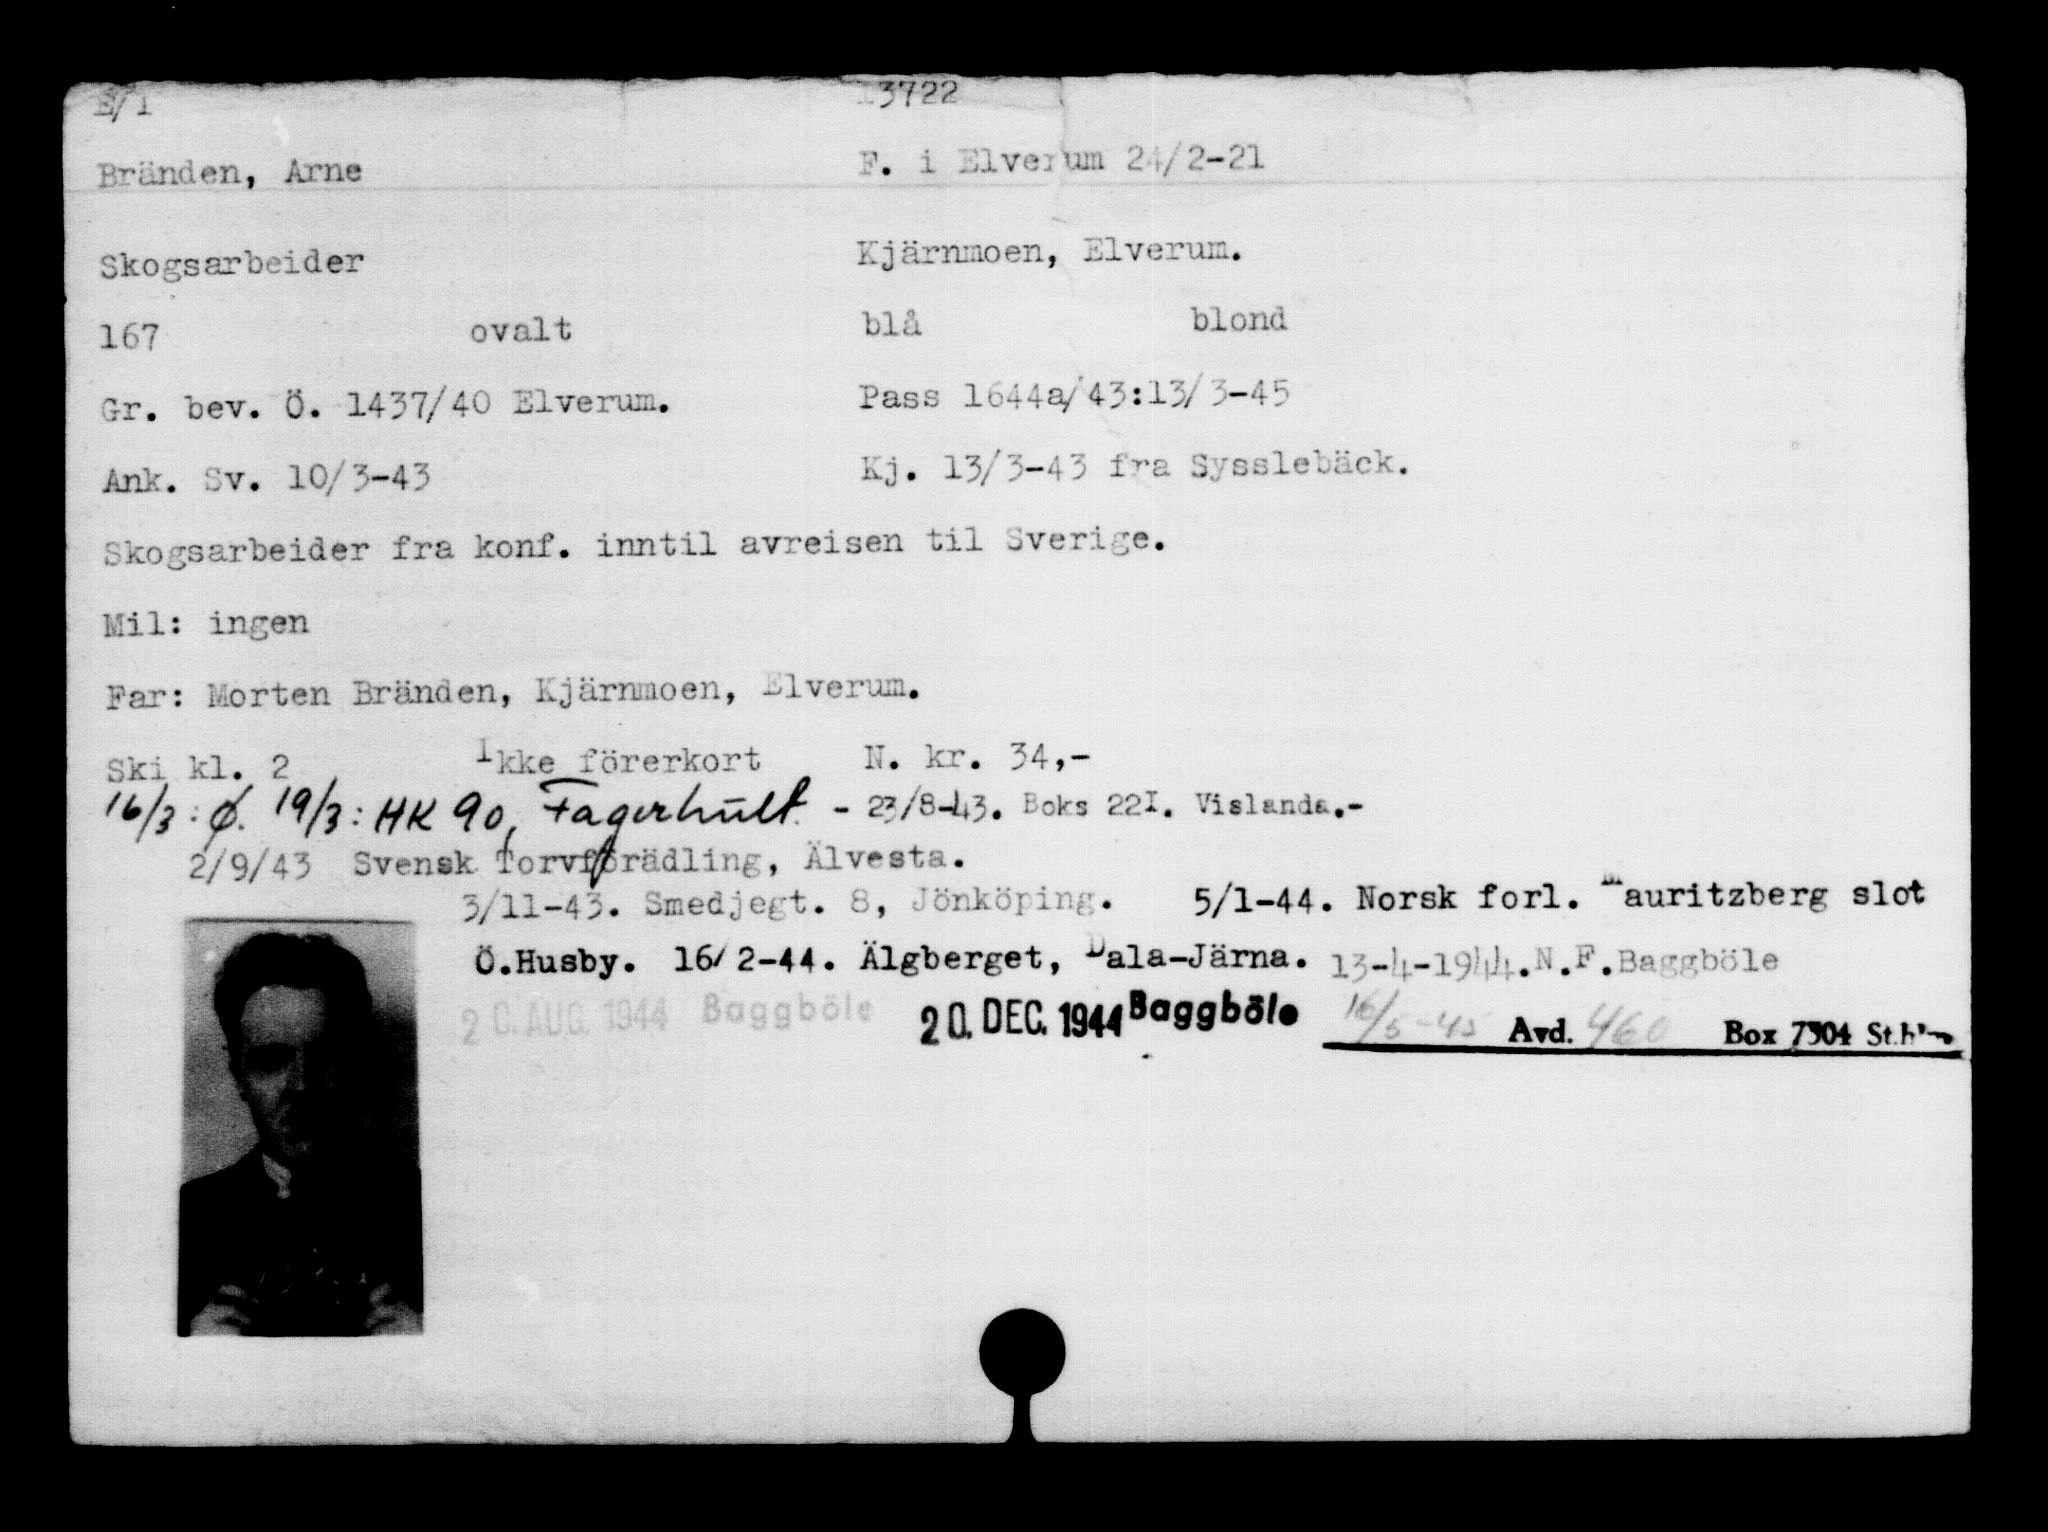 E/1 13722
Bränden, Arne F. i Elverum 24/2-21
Skogsarbeider Kjärnmoen, Elverum.
167 ovalt blå blond
Gr. bev. Ö. 1437/40 Elverum. Pass 1644a/43:13/3-45
Ank. Sv. 10/3-43 Kj. 13/3-43 fra Sysslebäck.
Skogsarbeider fra konf. inntil avreisen til Sverige.
Mil: ingen
Far: Morten Bränden, Kjärnmoen, Elverum.
Ski kl. 2 Ikke förerkort N. kr. 34,-
16/3: Ø. 19/3: HK 90, Fagerhult. - 23/8-43. Boks 221. Vislanda.-
2/9/43 Svensk Torvförädling, Älvesta.
3/11-43. Smedjegt. 8, Jönköping. 5/1-44. Norsk forl. Mauritzberg slot
Ö.Husby. 16/2-44. Älgberget, Dala-Järna. 13-4-1944.N.F.Baggböle
20. AUG. 1944 Baggböle 20. DEC. 1944 Baggböle 16/5-45 Avd. 460 Box 7304